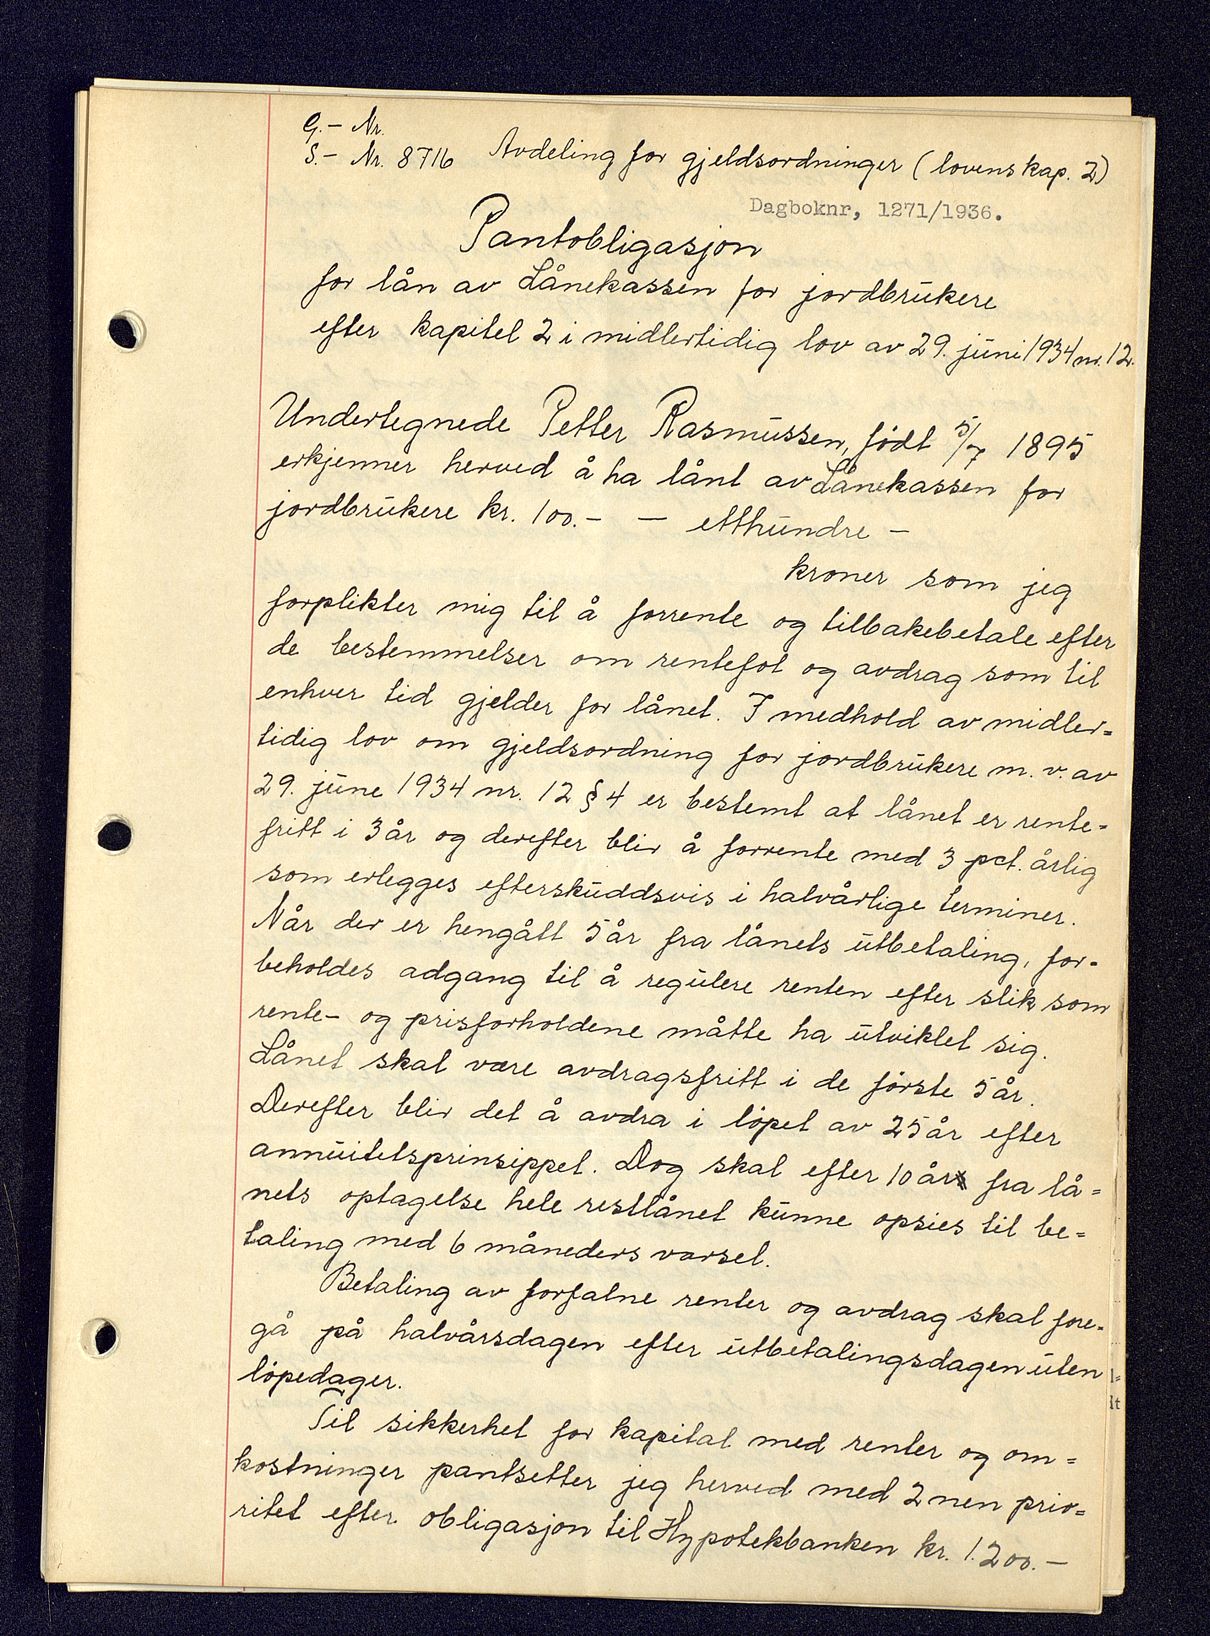 G.- Nr.
S.- Nr. 8716 Avdeling for gjeldsordninger (lovens kap. 2)
Dagboknr, 1271/1936.
Pantobligasjon
for lån av Lånekassen for jordbrukere
efter kapitel 2 i midlertidig lov av 29. juni 1934 nr. 12.
Undertegnede Petter Rasmussen, født 5/7 1895
erkjenner herved å ha lånt av Lånekassen for
jordbrukere kr. 100.- - etthundre -
kroner som jeg
forplikter mig til å forrente og tilbakebetale efter
de bestemmelser om rentefot og avdrag som til
enhver tid gjelder for lånet. I medhold av midler=
tidig lov om gjeldsordning for jordbrukere m. v. av
29. june 1934 nr. 12 § 4 er bestemt at lånet er rente=
fritt i 3 år og derefter blir å forrente med 3 pct. årlig
som erlegges efterskuddsvis i halvårlige terminer.
Når der er hengått 5 år fra lånets utbetaling, for=
beholdes adgang til å regulere renten efter slik som
rente- og prisforholdene måtte ha utviklet sig.
Lånet skal være avdragsfritt i de første 5 år.
Derefter blir det å avdra i løpet av 25 år efter
annuitetsprinsippet. Dog skal efter 10 år fra lå=
nets optagelse hele restlånet kunne opsies til be=
taling med 6 måneders varsel.
Betaling av forfalne renter og avdrag skal fore=
gå på halvårsdagen efter utbetalingsdagen uten
løpedager.
Til sikkerhet for kapital med renter og om=
kostninger pantsetter jeg herved med 2nen prio=
ritet efter obligasjon til Hypotekbanken kr. 1.200.-